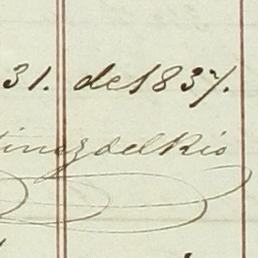 31. de 1837.
tinez del Rio